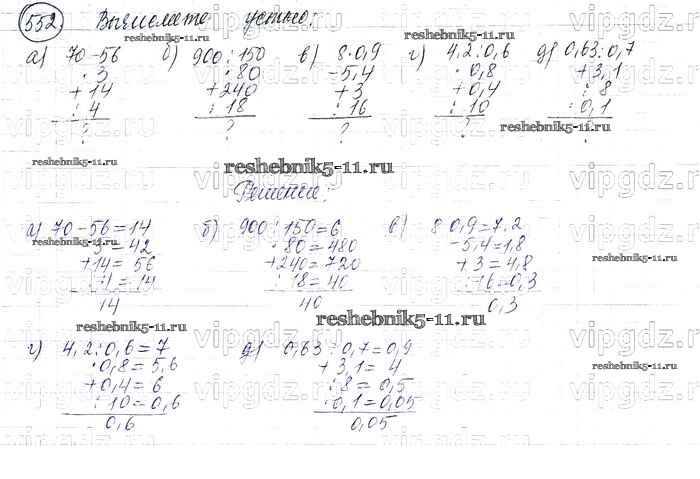 552 Вычислите устно:
а) 70-56 б) 900:150 в) 8·0,9 г) 4,2:0,6 д) 0,63:0,7
·3 ·80 -5,4 ·0,8 +3,1
+14 +240 +3 +0,4 :8
:4 :18 :16 :10 ·0,1
? ? ? ? ?
Решение:
а) 70-56=14 б) 900:150=6 в) 8·0,9=7,2
·3=42 ·80=480 -5,4=1,8
+14=56 +240=720 +3=4,8
:4=14 :18=40 :16=0,3
14 40 0,3
г) 4,2:0,6=7 д) 0,63:0,7=0,9
·0,8=5,6 +3,1=4
+0,4=6 :8=0,5
:10=0,6 ·0,1=0,05
0,6 0,05
reshebnik5-11.ru
reshebnik5-11.ru
reshebnik5-11.ru
reshebnik5-11.ru
reshebnik5-11.ru
reshebnik5-11.ru
reshebnik5-11.ru
reshebnik5-11.ru
reshebnik5-11.ru
reshebnik5-11.ru
vipgdz.ru